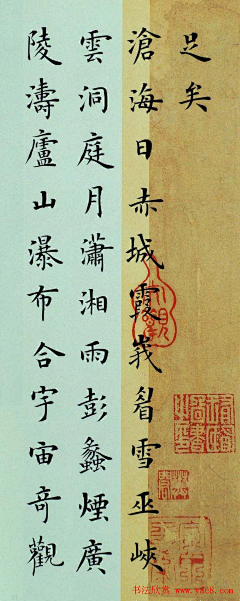 足矣
滄海日赤城霞峩眉雪巫峽
雲洞庭月瀟湘雨彭蠡煙廣
陵濤廬山瀑布合宇宙奇觀
书法欣赏 yac8.com